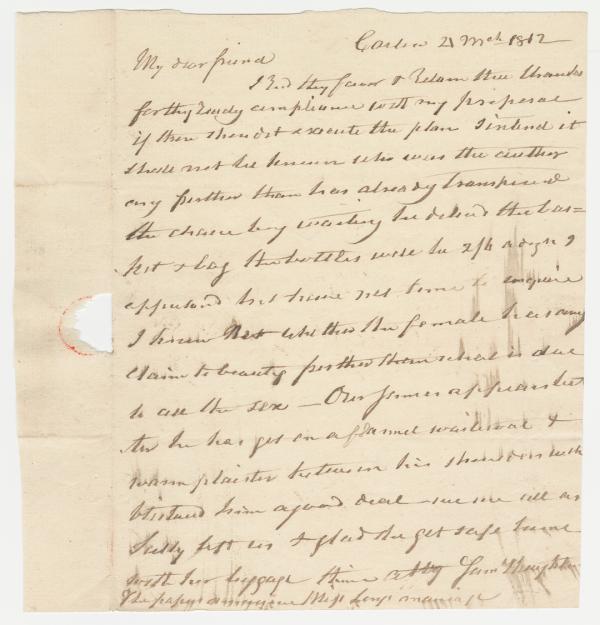 21 Mch 1812
My dear friend
I Recd thy favor & Return thee thanks
for thy ready compliance with my proposal
if thou shouldst execute the plan I intend it
shall not be known who was the author
any further than has already transpired
the chance by waiting be the bas=
ket & bag the bottles will be 2/6 a dozn I
apprehend but have not time to inquire
I know not whether the female has any
claim to beauty further than what is due
to all the sex — Our James appears bet
ter he has got on a flannel waistcoat &
warm plaister between his shoulders which
blistered him a good deal we are all as
Sally left us & glad she got safe home
with her luggage thine
The papers announce Miss marriage